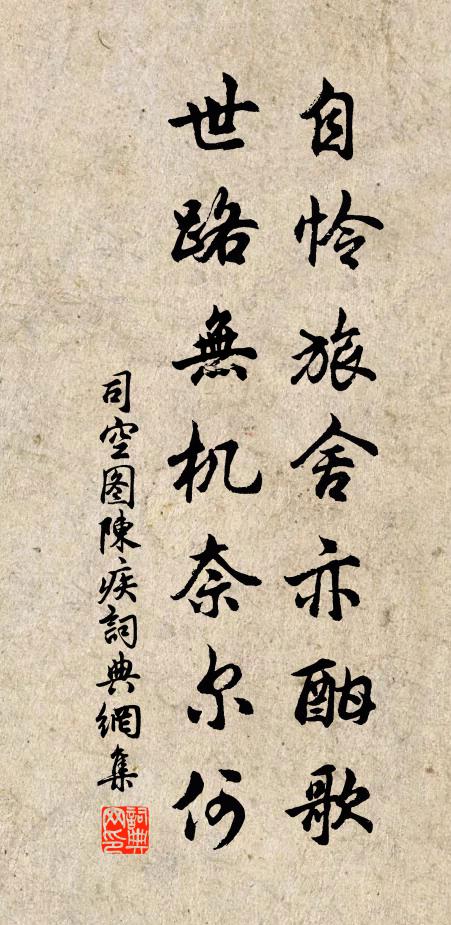 自怜旅舍亦酣歌
世路無机奈尔何
司空图陳疾詞典網集
詞典网印